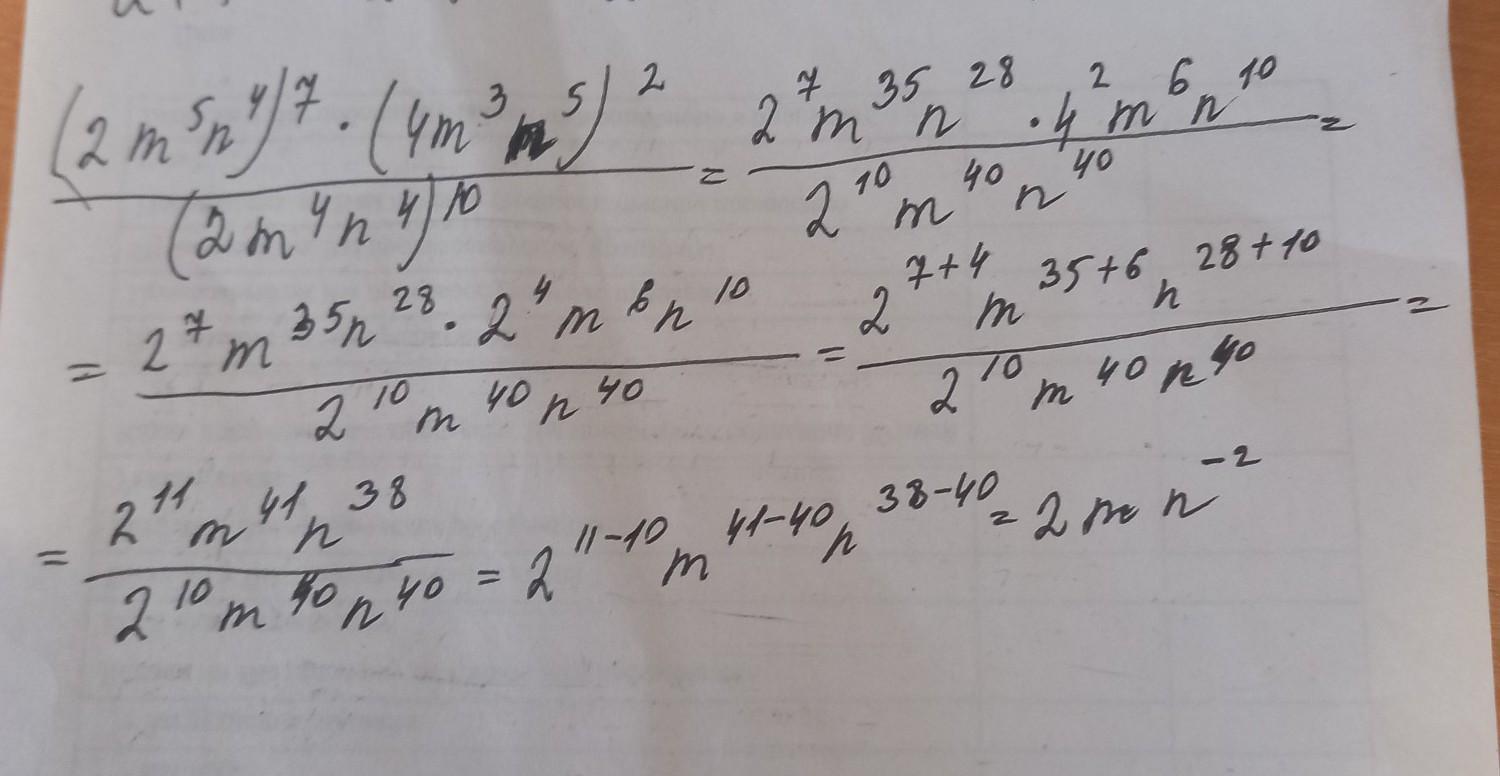 (2m⁵n⁴)⁷ · (4m³n⁵)² / (2m⁴n⁴)¹⁰ = 2⁷m³⁵n²⁸ · 4²m⁶n¹⁰ / 2¹⁰m⁴⁰n⁴⁰ =
= 2⁷m³⁵n²⁸ · 2⁴m⁶n¹⁰ / 2¹⁰m⁴⁰n⁴⁰ = 2⁷⁺⁴m³⁵⁺⁶n²⁸⁺¹⁰ / 2¹⁰m⁴⁰n⁴⁰ =
= 2¹¹m⁴¹n³⁸ / 2¹⁰m⁴⁰n⁴⁰ = 2¹¹⁻¹⁰m⁴¹⁻⁴⁰n³⁸⁻⁴⁰ = 2mn⁻²